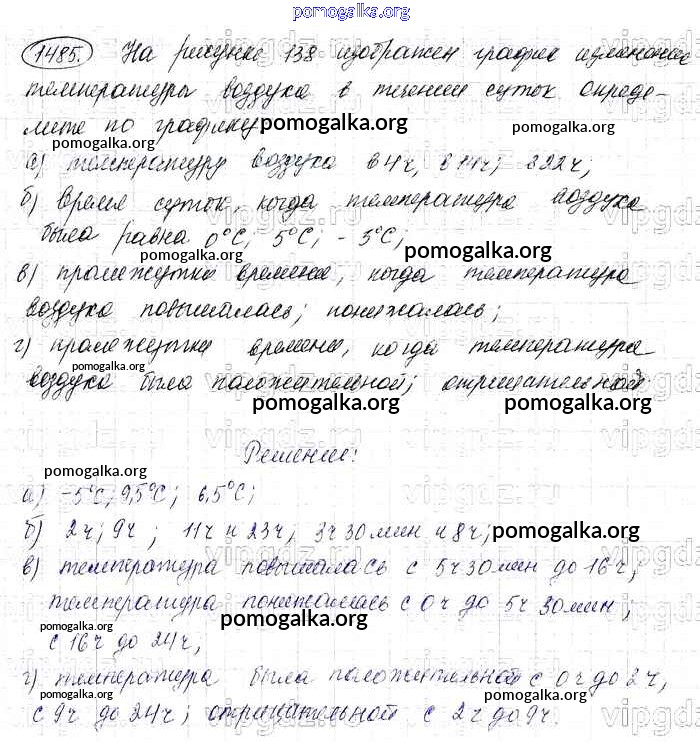 pomogalka.org
1485. На рисунке 138 изображен график изменения
температуры воздуха в течении суток опреде-
лите по графику pomogalka.org
pomogalka.org
а) температуру воздуха в 4ч, в 14ч; в 22ч;
б) время суток, когда температура воздуха
была равна 0°С; 5°С; -5°С;
pomogalka.org
в) промежутки времени, когда температура
воздуха повышалась; понижалась;
г) промежутки времени, когда температура
pomogalka.org
воздуха была положительной; отрицательной
pomogalka.org pomogalka.org
Решение:
pomogalka.org
а) -5°С; 9,5°С; 6,5°С;
б) 2ч; 9ч; 11ч и 23ч; 3ч 30мин и 8ч; pomogalka.org
в) температура повышалась с 5ч 30мин до 16ч;
температура понижалась с 0ч до 5ч 30мин;
pomogalka.org pomogalka.org
с 16ч до 24ч;
г) температура была положительной с 0ч до 2ч,
pomogalka.org pomogalka.org
с 9ч до 24ч; отрицательной с 2ч до 9ч.
pomogalka.org pomogalka.org